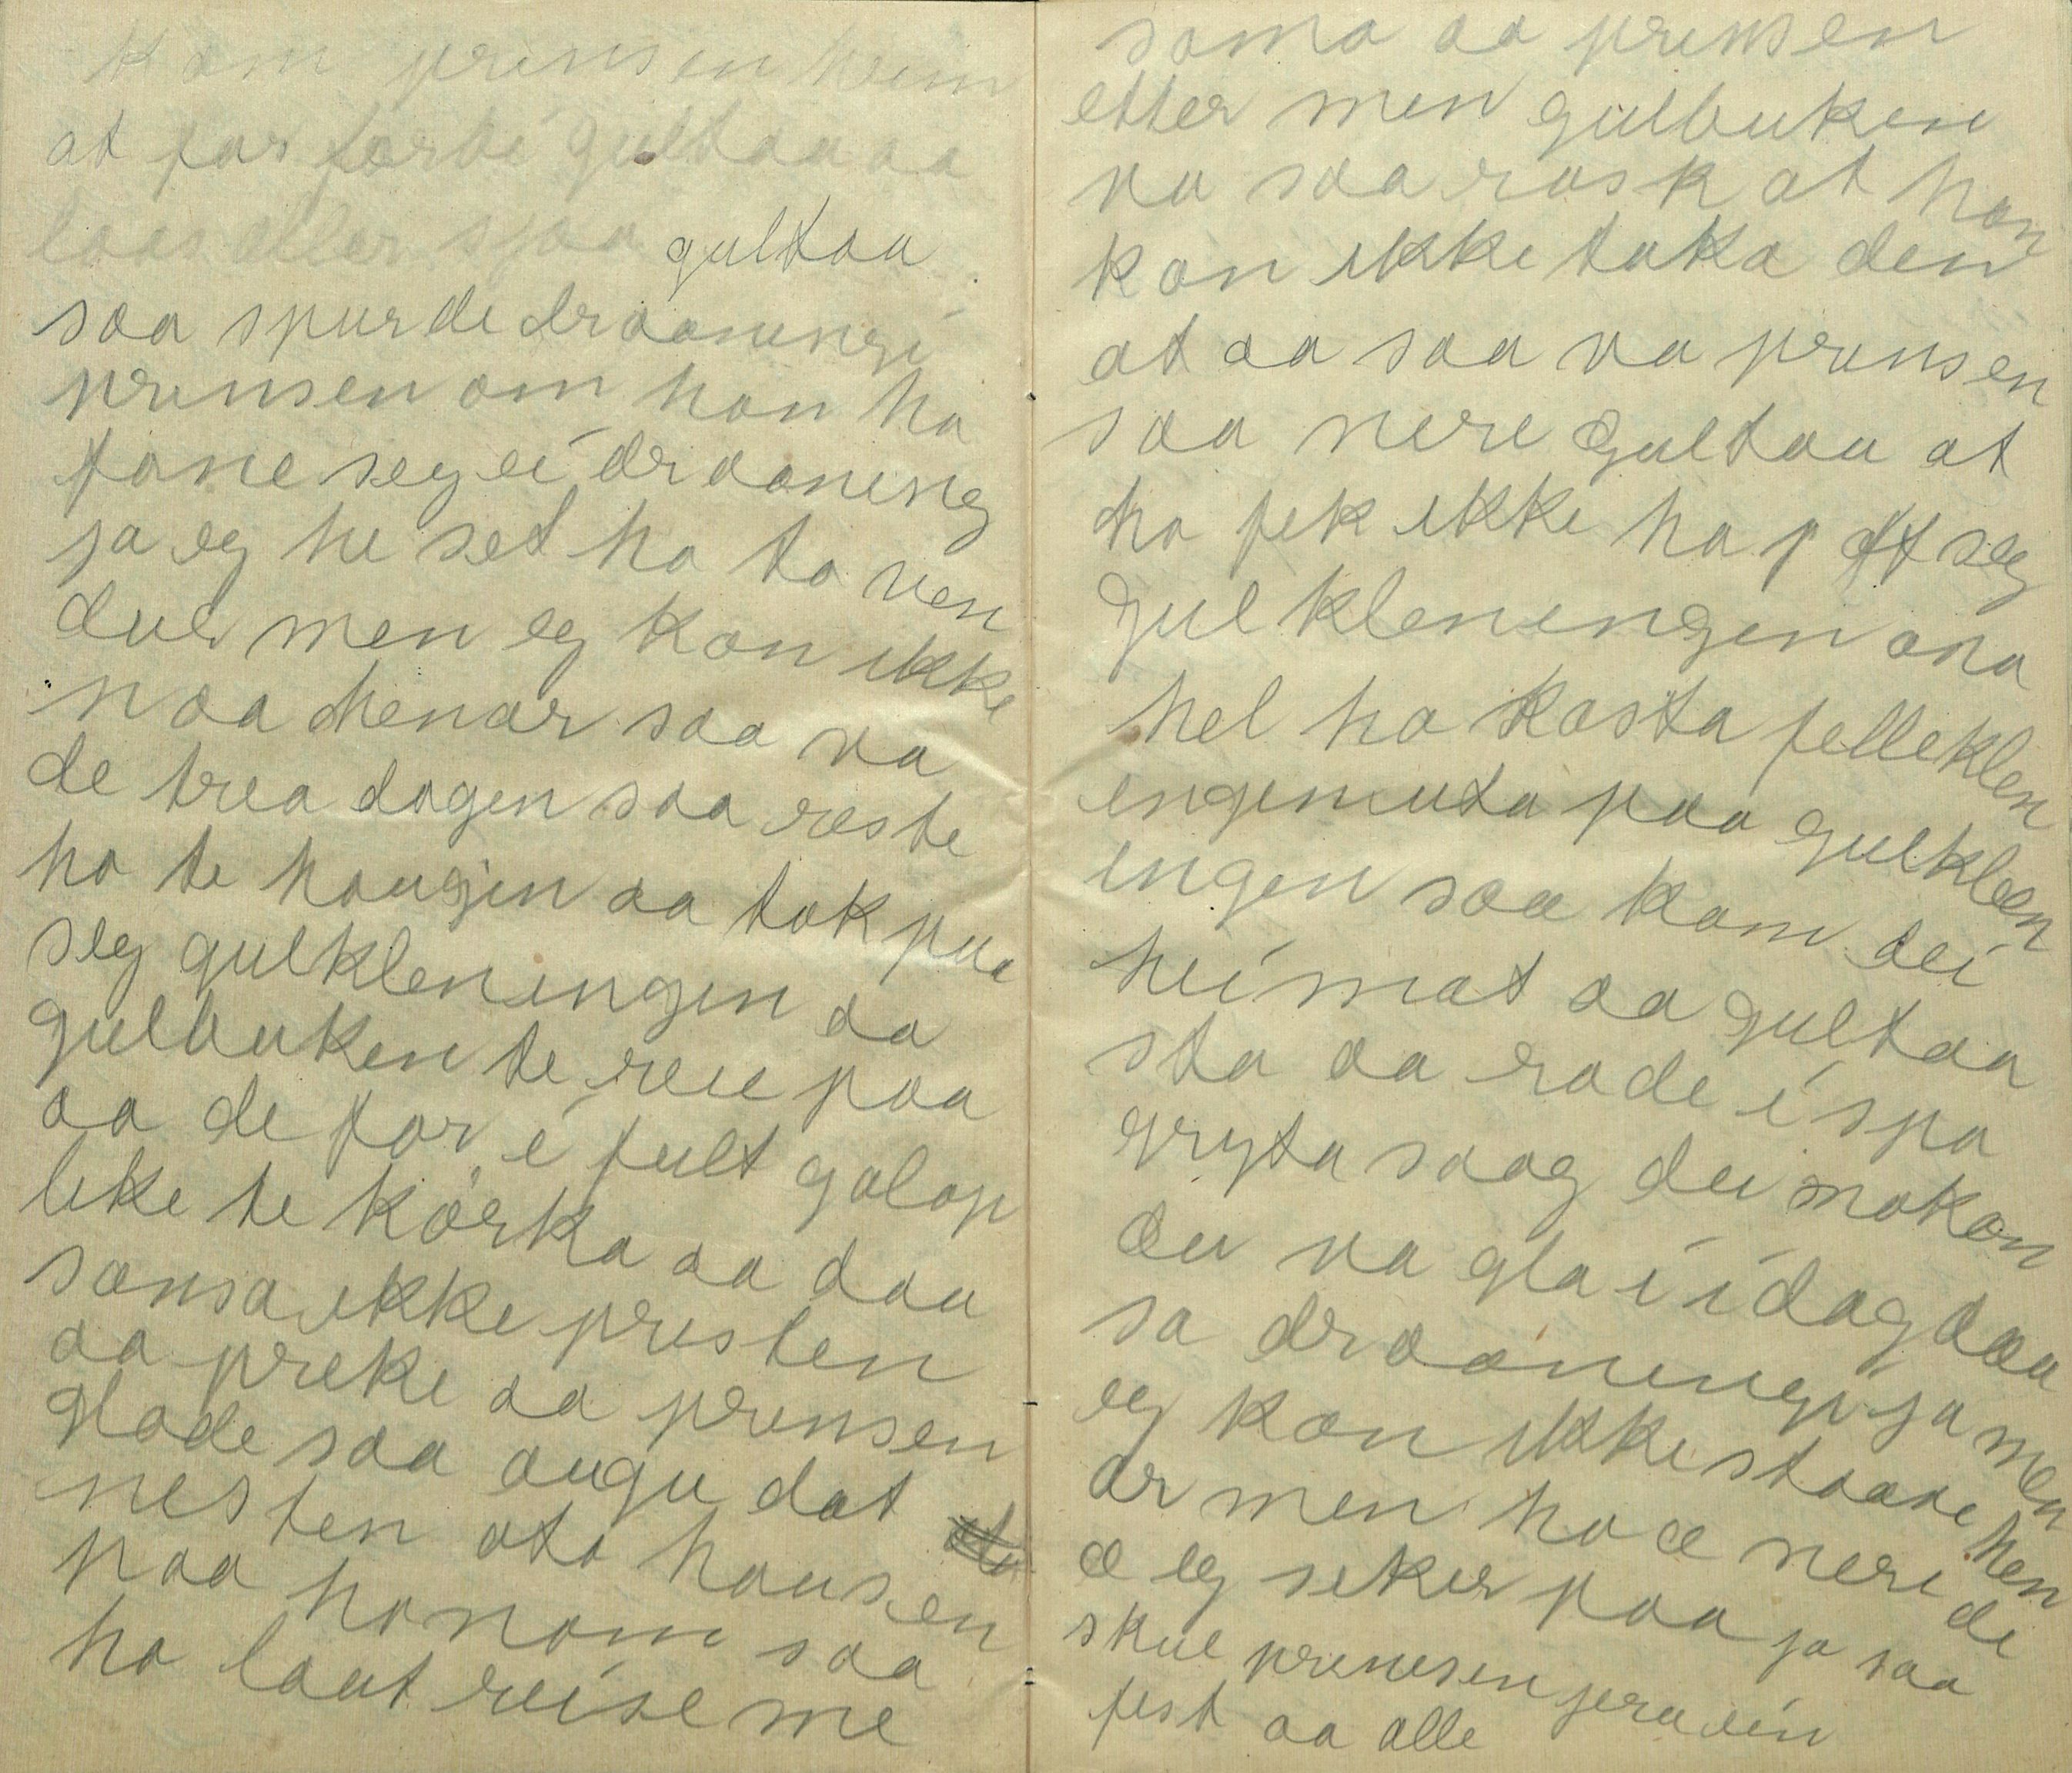 kom prinsen heim
at for forbi gultaa aa
laas eller sjaa gultaa
saa spurde draaningi
prinsen om han ha
fone seg ei draaning
ja eg he set ho to ven
dul men eg kan ikke
naa henar saa va
de trea dagen saa reste
ho te haugjen aa tok paa
seg gulkleningen aa
gulbuken te reie paa
aa de for i fult galop
like te körka aa daa
sansa ikke presten
aa preke aa prinsen
glode saa augu dat
nesten oto hausen
paa honom saa
ho laut reise me
soma aa prinsen
etter men gulbuken
va saa rask at han
kan ikke taka den
at aa saa va prinsen
saa nere gultaa at
ho fek ikke ha p af seg
gulkleningen ona
hel ho kasta felleklen
ingenuta paa gulkleen
ingen saa kom dei
heimat aa gultaa
sto aa rode i spa
gryta saag dei makan
du va gla i idag daa
sa draaningi ja men
eg kan ikke staane hen
ar men ho æ nere de
æ eg seker paa ja saa
skul prinesen jera ein
fest aa alle